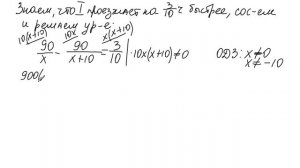 Знаем, что I проезжает на 3/10 ч быстрее, сос-ем
и решаем ур-е:
10(x+10) 10x x(x+10)
90/x - 90/x+10 = 3/10 | ·10x(x+10)≠0 ОДЗ: x≠0
x≠-10
900(